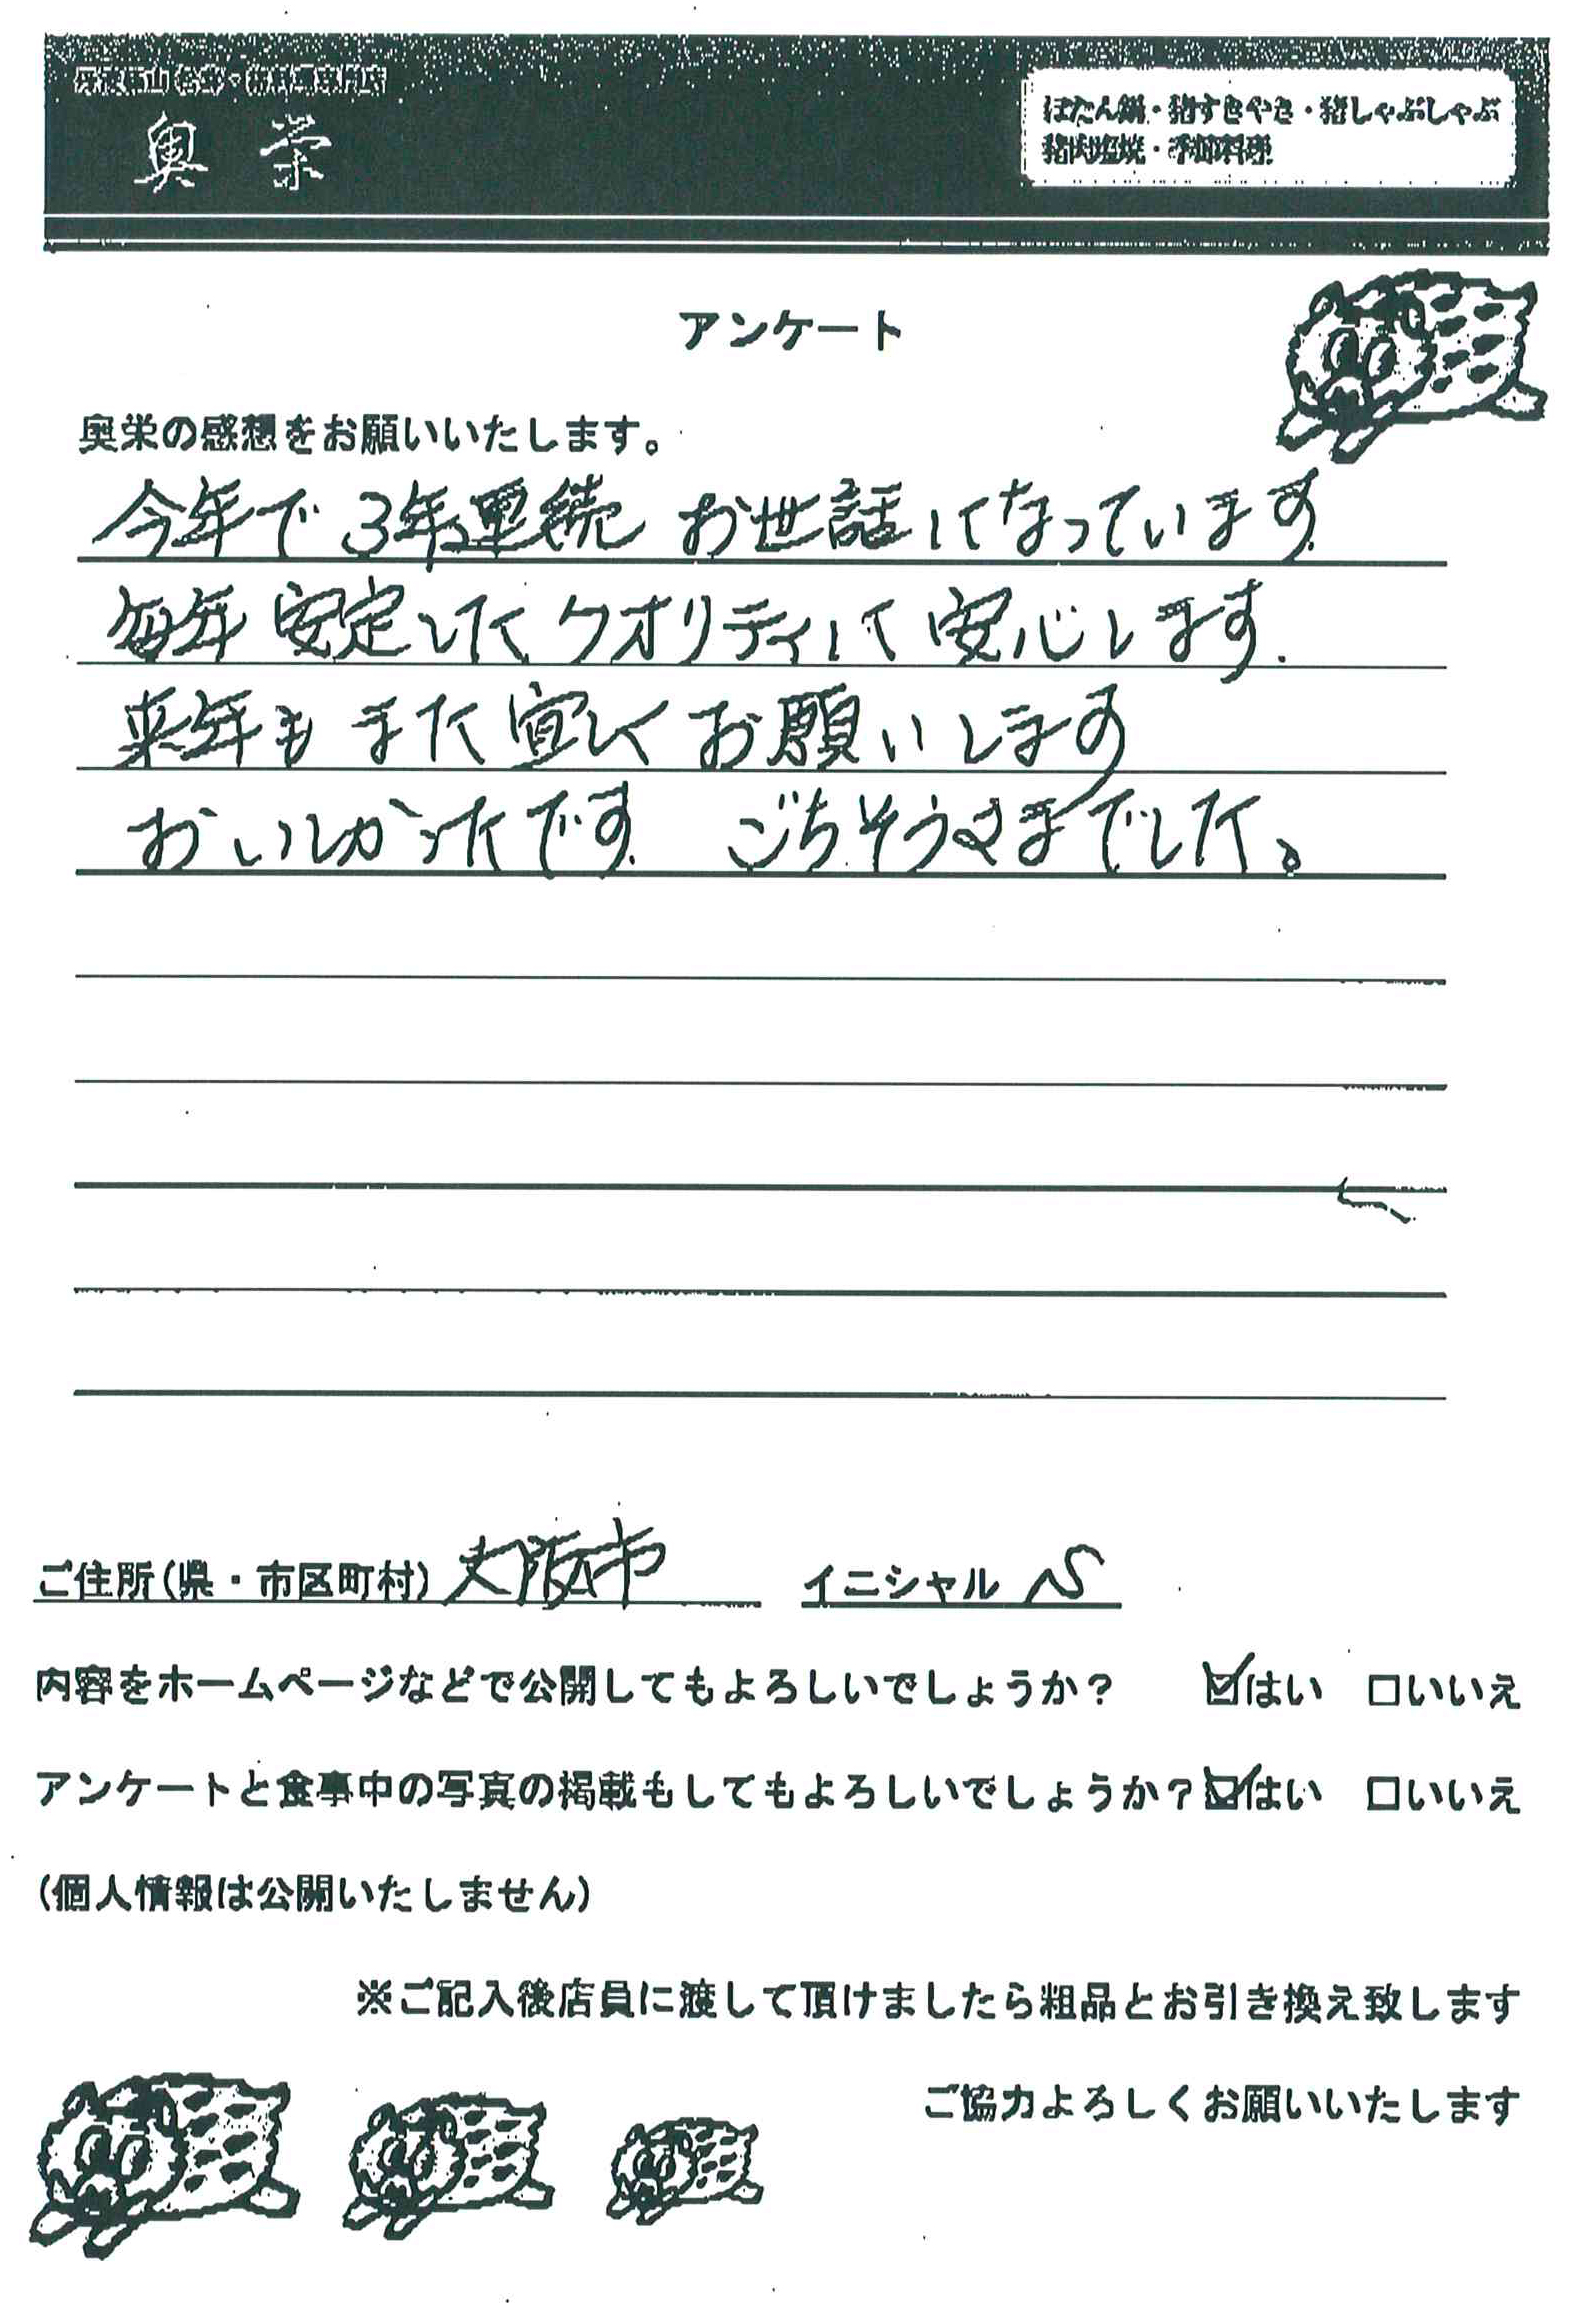 奥栄
ぼたん鍋・猪すきやき・猪しゃぶしゃぶ
猪肉塩焼・季節料理
アンケート
奥栄の感想をお願いいたします。
今年で3年連続 お世話になっています.
毎年 安定した クオリティに 安心します.
来年も また 宜しく お願いします
おいしかったです. ごちそうさまでした。
ご住所(県・市区町村) 大阪市 イニシャル S
内容をホームページなどで公開してもよろしいでしょうか? ☑はい □いいえ
アンケートと食事中の写真の掲載もしてもよろしいでしょうか? ☑はい □いいえ
(個人情報は公開いたしません)
※ご記入後店員に渡して頂けましたら粗品とお引き換え致します
ご協力よろしくお願いいたします